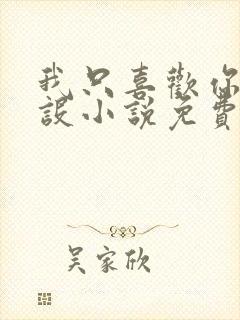 我只喜歡你
設小說免費
吴家欣